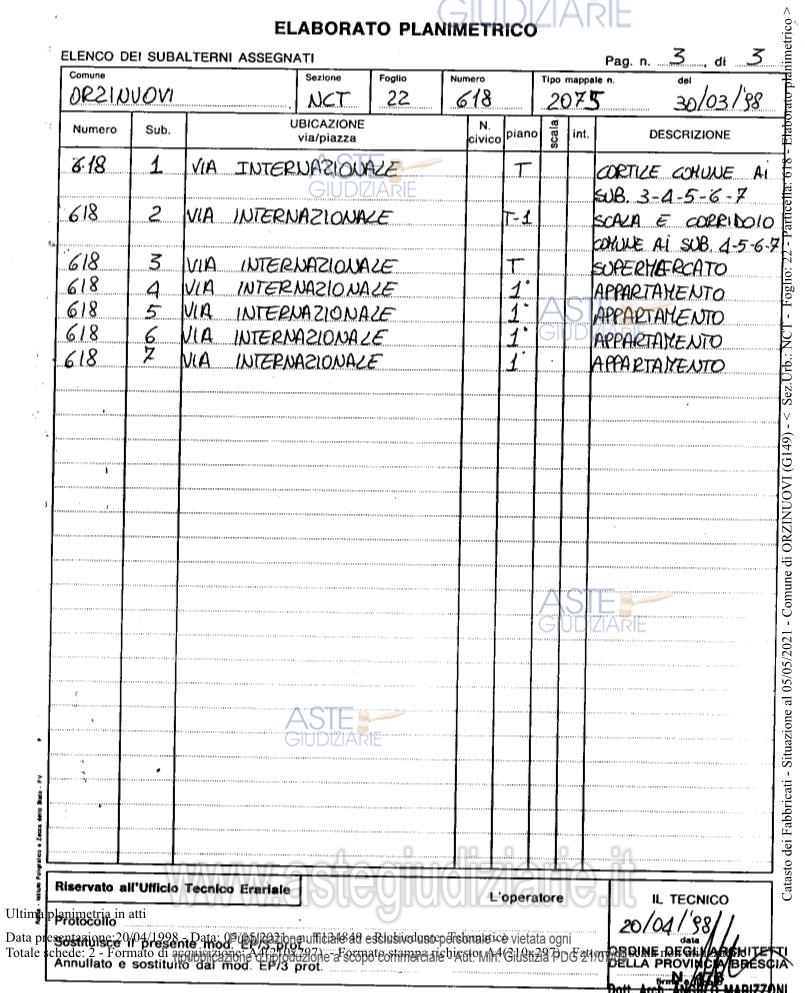 ELABORATO PLANIMETRICO
ELENCO DEI SUBALTERNI ASSEGNATI
Pag. n. 3 di 3
Comune Sezione Foglio Numero Tipo mappale n. del
ORZINUOVI NCT 22 618 2075 30/03/'98
Numero Sub. UBICAZIONE via/piazza N. civico piano scala int. DESCRIZIONE
618 1 VIA INTERNAZIONALE T CORTILE COMUNE Ai
SUB. 3-4-5-6-7
618 2 VIA INTERNAZIONALE T-1 SCALA E CORRIDOIO
COMUNE Ai SUB. 4-5-6-7
618 3 VIA INTERNAZIONALE T SUPERMERCATO
618 4 VIA INTERNAZIONALE 1° APPARTAMENTO
618 5 VIA INTERNAZIONALE 1° APPARTAMENTO
618 6 VIA INTERNAZIONALE 1° APPARTAMENTO
618 7 VIA INTERNAZIONALE 1° APPARTAMENTO
ASTE GIUDIZIARIE
ASTE GIUDIZIARIE
ASTE GIUDIZIARIE
ASTE GIUDIZIARIE
GIUDIZIARIE
www.astegiudiziarie.it
Riservato all'Ufficio Tecnico Erariale
L'operatore
IL TECNICO
Ultima planimetria in atti
Protocollo
20/04/'98
data
Data presentazione:20/04/1998 - Data: 05/05/2021
Pubblicazione ufficiale ad esclusivo uso personale - è vietata ogni
Sostituisce il presente mod. EP/3 prot.
Totale schede: 2 - Formato di
ripubblicazione o riproduzione a scopo commerciale - Aut. Min. Giustizia PDG 21/07/
ORDINE DEGLI ARCHITETTI
DELLA PROVINCIA BRESCIA
Annullato e sostituito dal mod. EP/3 prot.
Dott. Arch. ANGELO MARIZZONI
Catasto dei Fabbricati - Situazione al 05/05/2021 - Comune di ORZINUOVI (G149) - < Sez.Urb.: NCT - Foglio: 22 - Particella: 618 - Elaborato planimetrico >